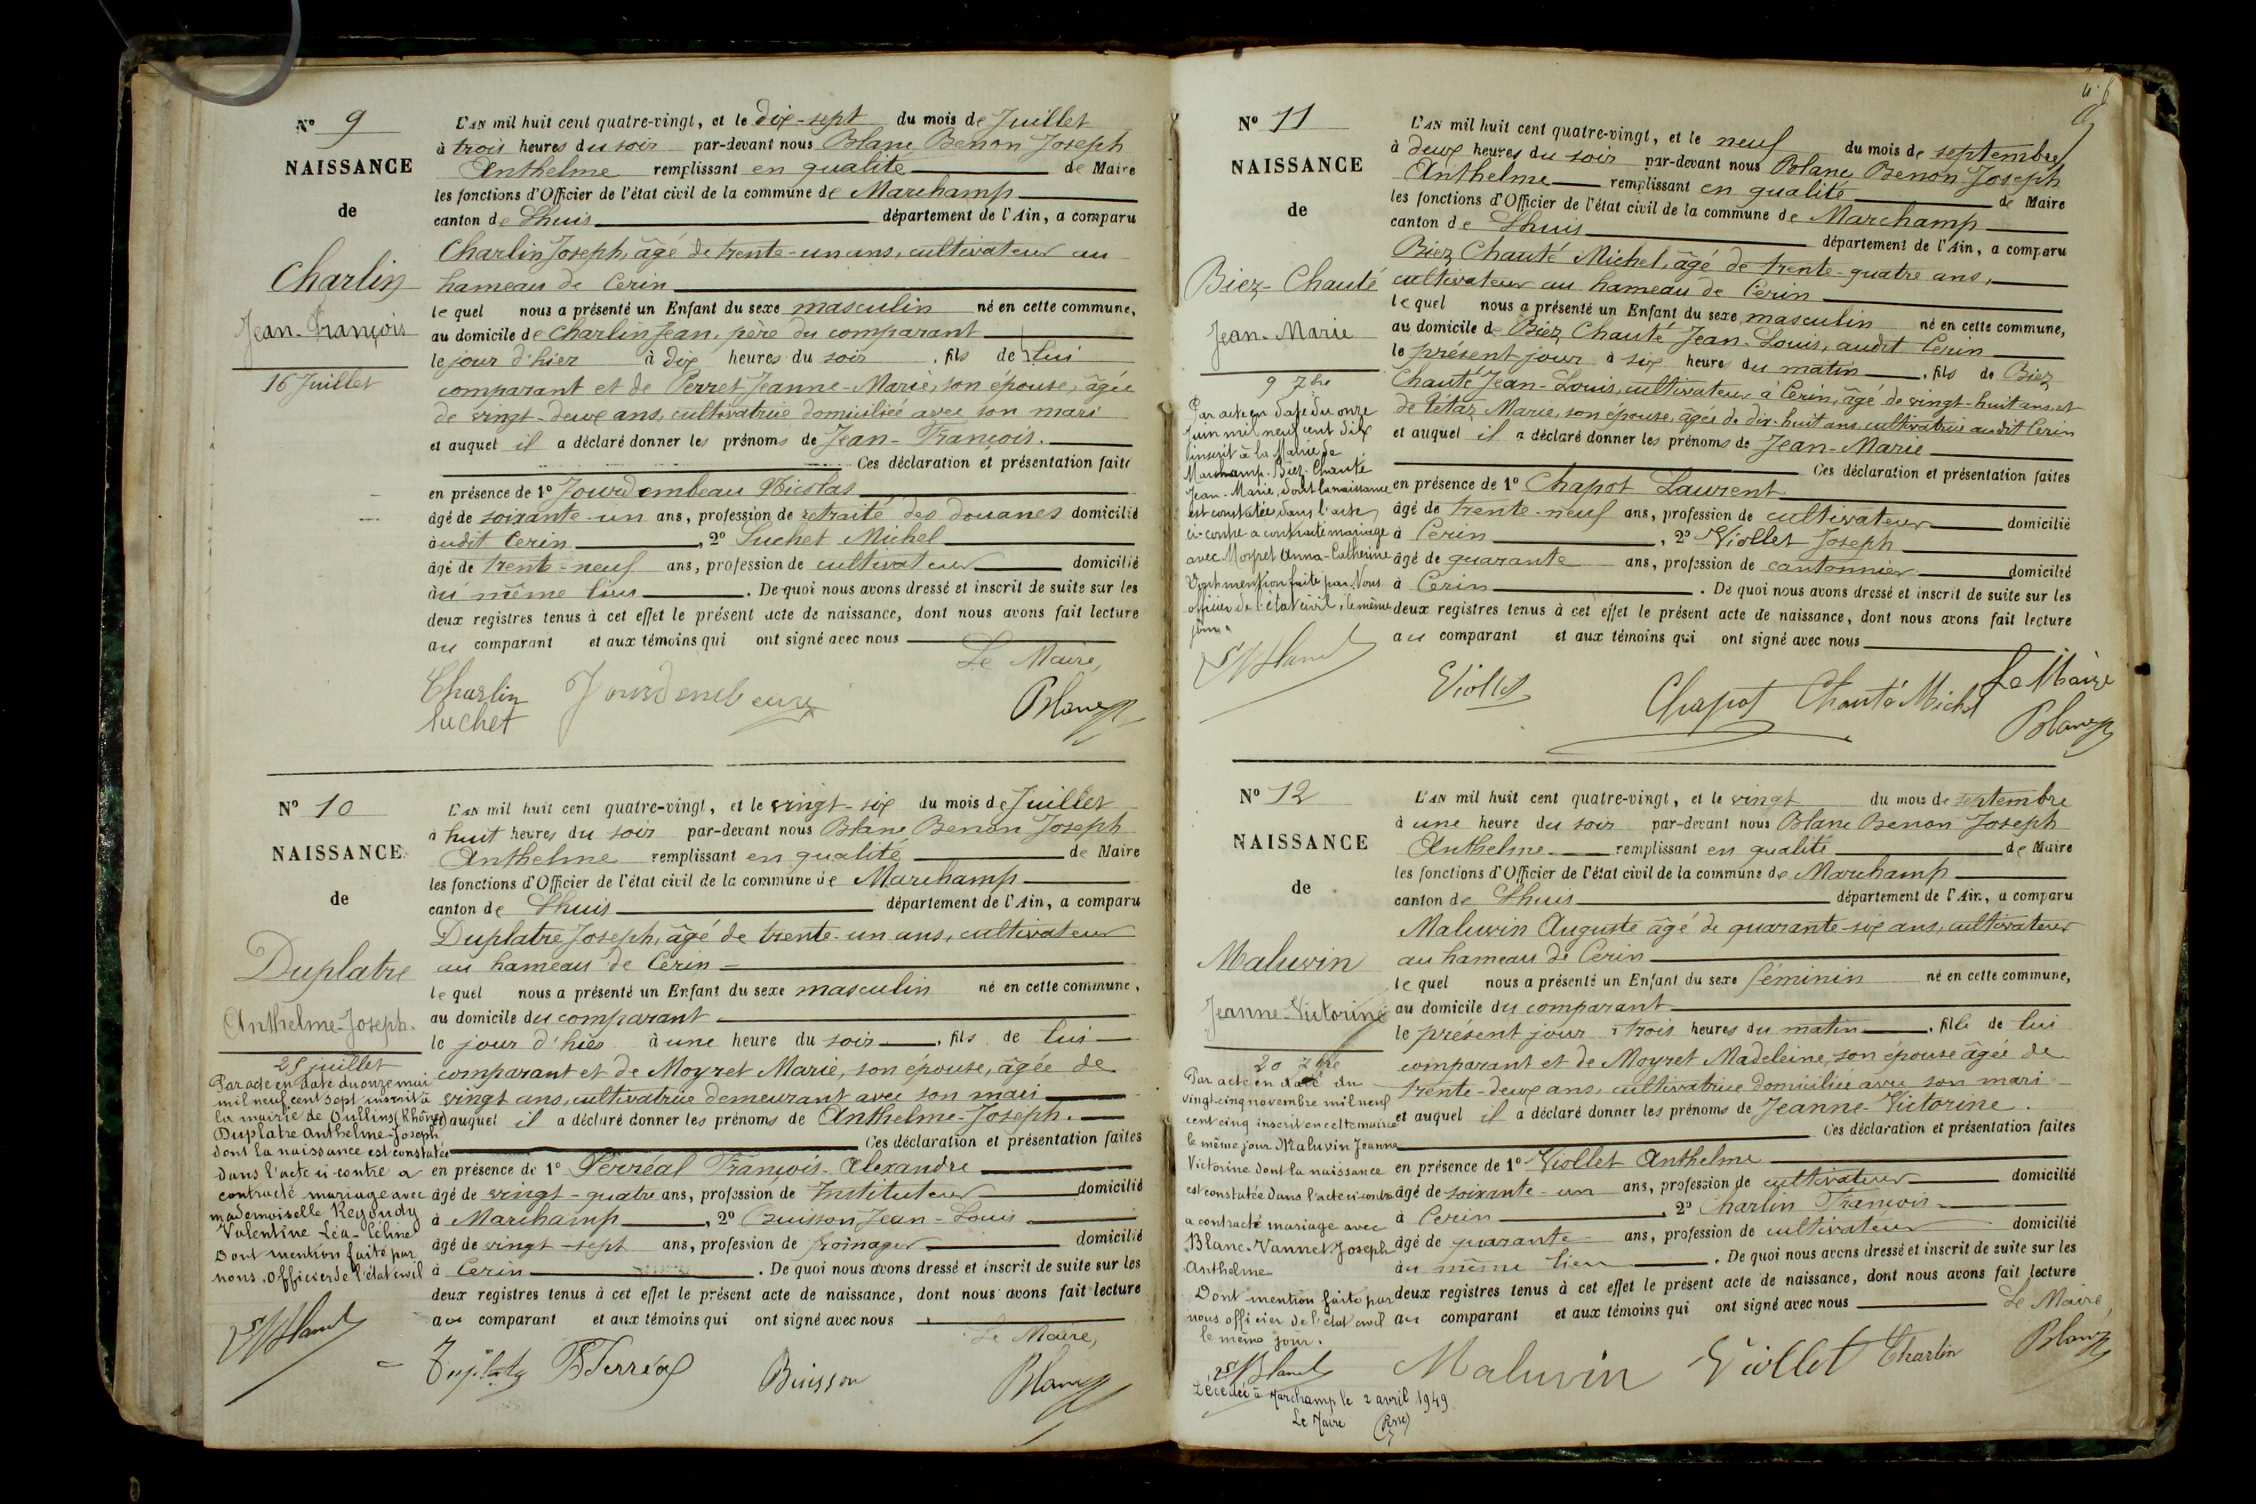 Nº 9
NAISSANCE
de
Charlin
Jean-François
16 Juillet
L'AN mil huit cent quatre-vingt, et le dix-sept du mois de Juillet
à trois heures du soir par-devant nous Blanc Benon Joseph
Anthelme remplissant en qualité de Maire
les fonctions d'Officier de l'état civil de la commune de Marchamp
canton de Lhuis département de l'Ain, a comparu
Charlin Joseph, âgé de trente-un ans, cultivateur au
hameau de Cerin
lequel nous a présenté un Enfant du sexe masculin né en cette commune,
au domicile de Charlin Jean, père du comparant
le jour d'hier à dix heures du soir, fils de lui
comparant et de Perret Jeanne-Marie, son épouse, âgée
de vingt-deux ans, cultivatrice domiciliée avec son mari
et auquel il a déclaré donner les prénoms de Jean-François.
Ces déclaration et présentation faites
en présence de 1º Jourdembeau Nicolas
âgé de soixante-un ans, profession de retraité des douanes domicilié
audit Cerin, 2º Luchet Michel
âgé de trente-neuf ans, profession de cultivateur domicilié
au même lieu. De quoi nous avons dressé et inscrit de suite sur les
deux registres tenus à cet effet le présent acte de naissance, dont nous avons fait lecture
au comparant et aux témoins qui ont signé avec nous
Le Maire,
Charlin Jourdembeau Blanc
Luchet
Nº 10
NAISSANCE
de
Duplatre
Anthelme-Joseph.
25 juillet
Par acte en date du onze mai
mil neuf cent sept inscrit à
la mairie de Oullins (Rhône)
Duplatre Anthelme-Joseph
dont la naissance est constatée
dans l'acte ci-contre a
contracté mariage avec
mademoiselle Regoudy
Valentine Léa-Céline
Dont mention faite par
nous, Officier de l'état civil
L'AN mil huit cent quatre-vingt, et le vingt-six du mois de Juillet
à huit heures du soir par-devant nous Blanc Benon Joseph
Anthelme remplissant en qualité de Maire
les fonctions d'Officier de l'état civil de la commune de Marchamp
canton de Lhuis département de l'Ain, a comparu
Duplatre Joseph, âgé de trente-un ans, cultivateur
au hameau de Cerin
lequel nous a présenté un Enfant du sexe masculin né en cette commune,
au domicile du comparant
le jour d'hier à une heure du soir, fils de lui
comparant et de Moyret Marie, son épouse, âgée de
vingt ans, cultivatrice demeurant avec son mari
et auquel il a déclaré donner les prénoms de Anthelme-Joseph.
Ces déclaration et présentation faites
en présence de 1º Perréal François-Alexandre
âgé de vingt-quatre ans, profession de Instituteur domicilié
à Marchamp, 2º Buisson Jean-Louis
âgé de vingt-sept ans, profession de fromager domicilié
à Cerin. De quoi nous avons dressé et inscrit de suite sur les
deux registres tenus à cet effet le présent acte de naissance, dont nous avons fait lecture
au comparant et aux témoins qui ont signé avec nous
Le Maire,
Duplatre Buisson Blanc
Nº 11
NAISSANCE
de
Biez-Chauté
Jean-Marie
9 7bre
Par acte en date du onze
juin mil neuf cent dix
inscrit à la Mairie de
Marchamp. Biez-Chauté
Jean-Marie, dont la naissance
est constatée dans l'acte
ci-contre a contracté mariage
avec Moyret Anna-Catherine
Dont mention faite par Nous
officier de l'état civil, le même
jour.
L'AN mil huit cent quatre-vingt, et le neuf du mois de septembre
à deux heures du soir par-devant nous Blanc Benon Joseph
Anthelme remplissant en qualité de Maire
les fonctions d'Officier de l'état civil de la commune de Marchamp
canton de Lhuis département de l'Ain, a comparu
Biez Chauté Michel, âgé de trente-quatre ans,
cultivateur au hameau de Cerin
lequel nous a présenté un Enfant du sexe masculin né en cette commune,
au domicile de Biez Chauté Jean-Louis, audit Cerin
le présent jour à six heures du matin, fils de Biez
Chauté Jean-Louis, cultivateur à Cerin, âgé de vingt-huit ans, et
de Tétaz Marie, son épouse, âgée de dix-huit ans, cultivatrice audit Cerin
et auquel il a déclaré donner les prénoms de Jean-Marie
Ces déclaration et présentation faites
en présence de 1º Chapot Laurent
âgé de trente-neuf ans, profession de cultivateur domicilié
à Cerin, 2º Viollet Joseph
âgé de quarante ans, profession de cantonnier domicilié
à Cerin. De quoi nous avons dressé et inscrit de suite sur les
deux registres tenus à cet effet le présent acte de naissance, dont nous avons fait lecture
au comparant et aux témoins qui ont signé avec nous
Viollet Chapot Chauté Michel Le Maire
Blanc
Nº 12
NAISSANCE
de
Maluvin
Jeanne-Victorine
20 7bre
Par acte en date du
vingt-cinq novembre mil neuf
cent cinq inscrit en cette mairie
le même jour Maluvin Jeanne
Victorine dont la naissance
est constatée dans l'acte ci-contre
a contracté mariage avec
Blanc-Vannet Joseph
Anthelme
Dont mention faite par
nous officier de l'état civil
le même jour.
Décédée à Marchamp le 2 avril 1949
Le Maire
L'AN mil huit cent quatre-vingt, et le vingt du mois de septembre
à une heure du soir par-devant nous Blanc Benon Joseph
Anthelme remplissant en qualité de Maire
les fonctions d'Officier de l'état civil de la commune de Marchamp
canton de Lhuis département de l'Ain, a comparu
Maluvin Auguste âgé de quarante-six ans, cultivateur
au hameau de Cerin
lequel nous a présenté un Enfant du sexe féminin né en cette commune,
au domicile du comparant
le présent jour à trois heures du matin, fille de lui
comparant et de Moyret Madeleine, son épouse âgée de
trente-deux ans, cultivatrice domiciliée avec son mari
et auquel il a déclaré donner les prénoms de Jeanne-Victorine.
Ces déclaration et présentation faites
en présence de 1º Viollet Anthelme
âgé de soixante-un ans, profession de cultivateur domicilié
à Cerin, 2º Charlin François
âgé de quarante ans, profession de cultivateur domicilié
au même lieu. De quoi nous avons dressé et inscrit de suite sur les
deux registres tenus à cet effet le présent acte de naissance, dont nous avons fait lecture
au comparant et aux témoins qui ont signé avec nous
Le Maire,
Maluvin Viollet Charlin Blanc